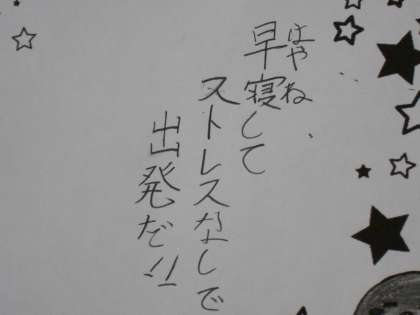 早寝して
はやね
ストレスなしで
出発だ!!